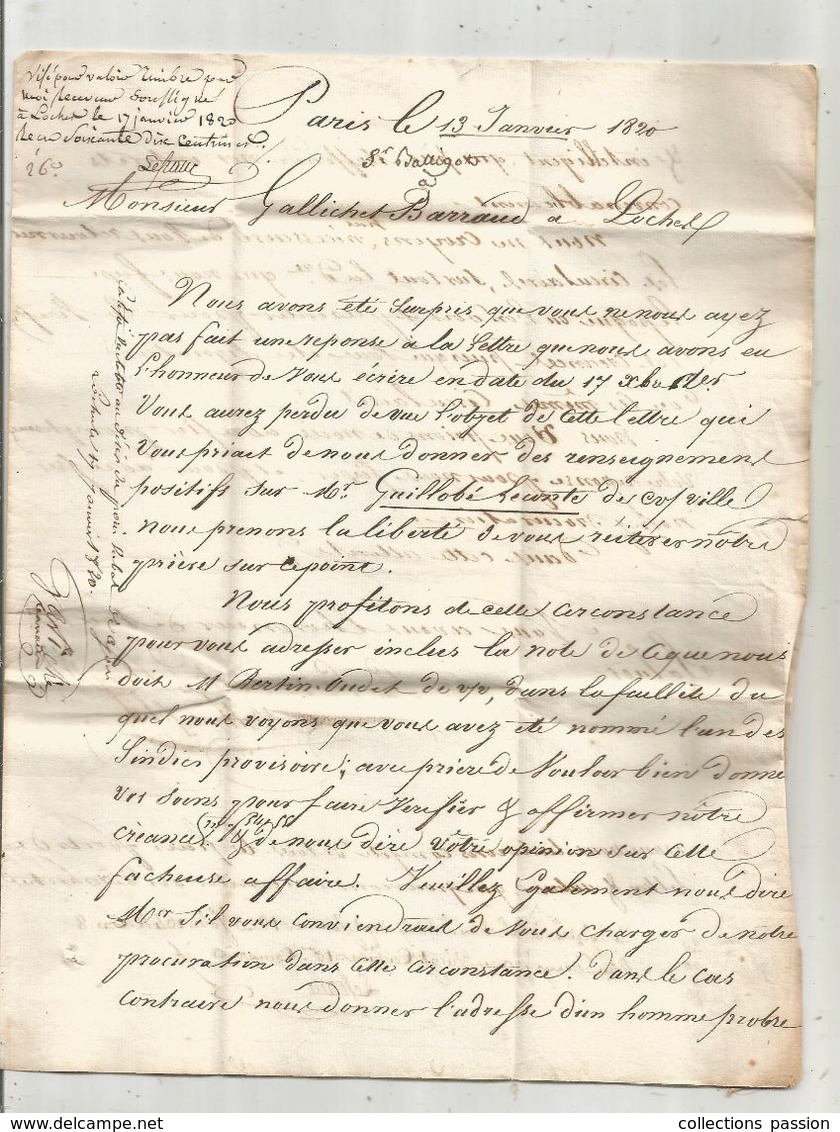 Visé pour valoir timbre par
moi receveur soussigné
à Loches le 17 janvier 1820
Reçu soixante dix centimes
Paris le 13 Janvier 1820
Monsieur Gallichet Barraud à Loches
Nous avons été surpris que vous ne nous ayez
pas fait une reponse a la lettre que nous avons eu
l'honneur de vous écrire en date du 17 xbre der
Vous aurez perdu de vue l'objet de cette lettre qui
Vous priait de nous donner des renseignemens
positifs sur Mr. Guillobé Leconte de vos ville
nous prenons la liberté de vous réitérer notre
prière sur ce point.
Nous profitons de cette circonstance
pour vous adresser inclus la note de ce que nous
doit M Bertin Oudet de vv, dans la faillite du
quel nous voyons que vous avez été nommé l'un des
Sindics provisoire; avec prière de Vouloir bien donne
vos soins pour faire Verifier & affirmer nôtre
créance & de nous dire Vôtre opinion sur cette
facheuse affaire. Veuillez Egalement nous dire
Mor s'il vous conviendrait de vous charger de notre
procuration dans cette circonstance. dans le cas
contraire nous donner l'adresse d'un homme probre
17 janvier 1820.
collections passion